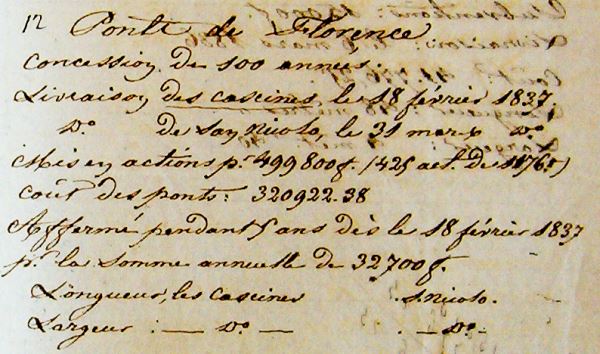 12 Ponts de Florence
Concession de 100 années.
Livraison des cascines, le 18 février 1837.
d.o de San Nicolo, le 31 mars d.o
Mis en actions p.r 499800f. (425 act. de 1176f.)
Coût des ponts: 320922.38
Affermé pendant 5 ans dès le 18 février 1837
p.r la somme annuelle de 32700f.
Longueur, les Cascines S. Nicolo.
Largeur : — d.o — . — d.o —